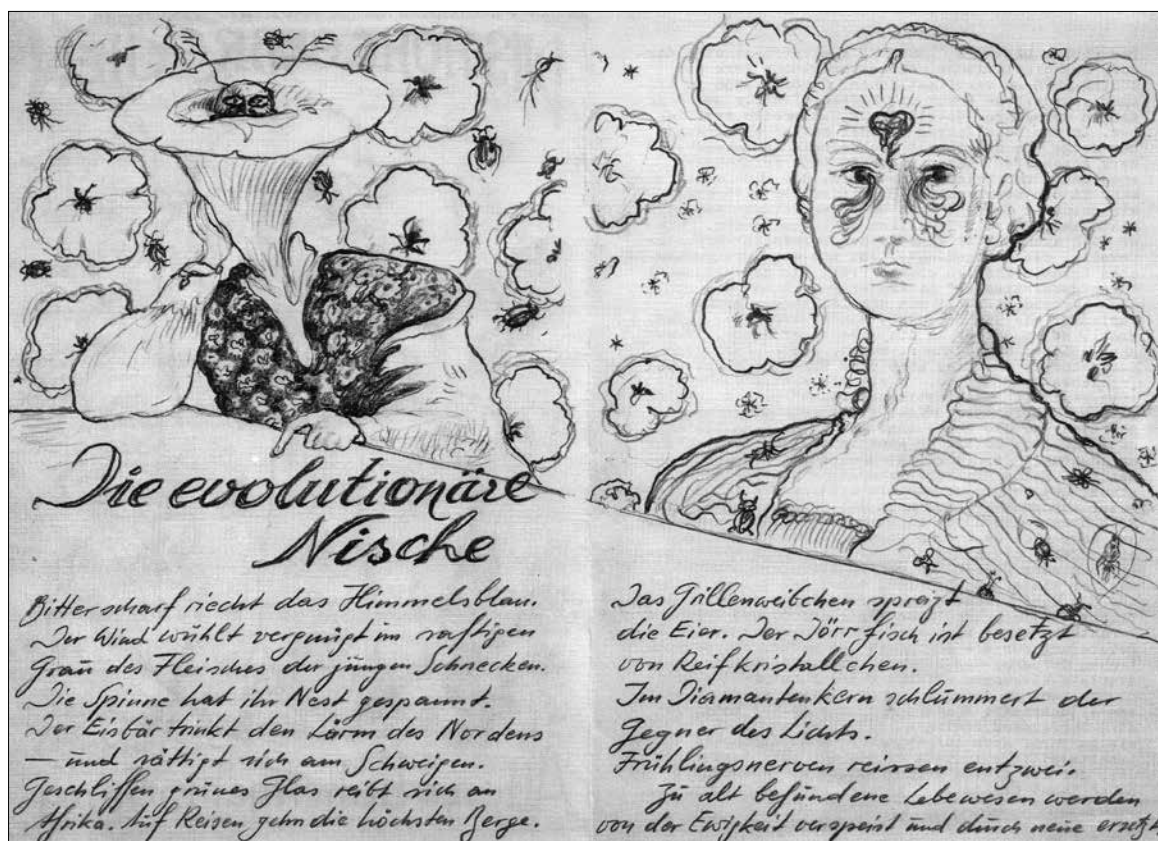 Die evolutionäre
Nische
Bitter scharf riecht das Himmelsblau.
Der Wind wühlt vergnügt im saftigen
Grau des Fleisches der jungen Schnecken.
Die Spinne hat ihr Nest gespannt.
Der Eisbär trinkt den Lärm des Nordens
— und sättigt sich am Schweigen.
Geschliffen grünes Glas reibt sich an
Afrika. Auf Reisen gehn die höchsten Berge.
Das Grillenweibchen spreizt
die Eier. Der Dörrfisch ist besetzt
von Reifkristallchen.
Im Diamantenkern schlummert der
Gegner des Lichts.
Frühlingsnerven reissen entzwei.
Zu alt befundene Lebewesen werden
von der Ewigkeit verspeist und durch neue ersetzt